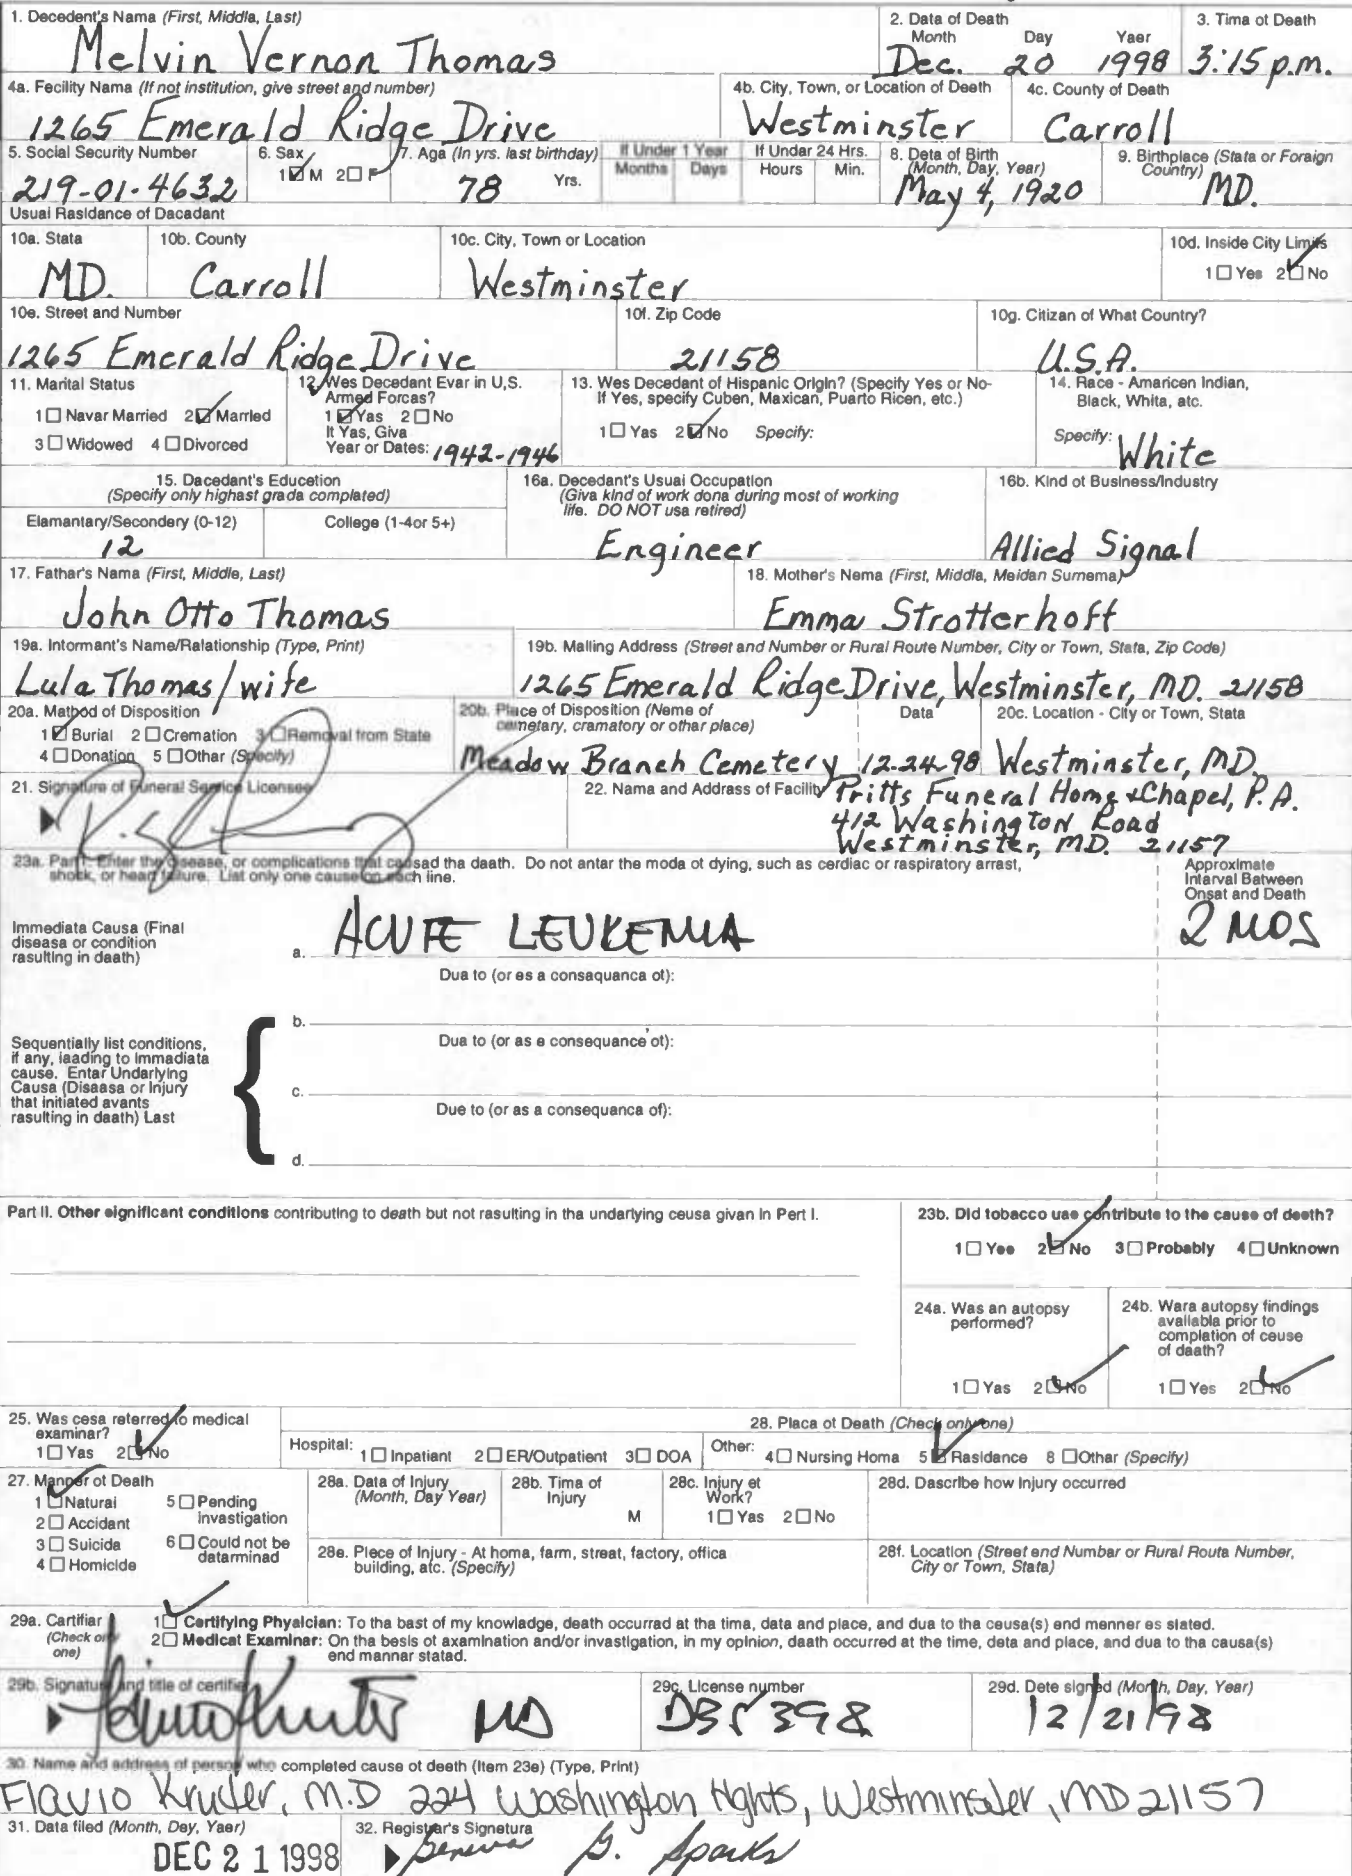 1. Decedent's Name (First, Middle, Last)
Melvin Vernon Thomas
2. Data of Death
Month Day Yaer
Dec. 20 1998
3. Tima ot Death
3:15 p.m.
4a. Fecility Name (If not institution, give street and number)
1265 Emerald Ridge Drive
4b. City, Town, or Location of Deeth
Westminster
4c. County of Death
Carroll
5. Social Security Number
219-01-4632
6. Sax
1☑ M 2☐ F
7. Aga (In yrs. last birthday)
78 Yrs.
If Under 1 Year
Months Days
If Undar 24 Hrs.
Hours Min.
8. Deta of Birth
(Month, Day, Year)
May 4, 1920
9. Birthplace (Stata or Foraign
Country)
MD.
Usuai Rasidance of Dacadant
10a. Stata
MD.
10b. County
Carroll
10c. City, Town or Location
Westminster
10d. Inside City Limits
1☐ Yes 2☑ No
10e. Street and Number
1265 Emerald Ridge Drive
10f. Zip Code
21158
10g. Citizan of What Country?
U.S.A.
11. Marital Status
1☐ Navar Married 2☑ Married
3☐ Widowed 4☐ Divorced
12. Wes Decedant Evar in U,S.
Armed Forcas?
1☑ Yas 2☐ No
It Yas, Giva
Year or Dates: 1942-1946
13. Wes Decedant of Hispanic Origin? (Specify Yes or No-
If Yes, specify Cuben, Maxican, Puarto Ricen, etc.)
1☐ Yas 2☑ No Specify:
14. Race - Amaricen Indian,
Black, Whita, atc.
Specify: White
15. Dacedant's Educetion
(Specify only highast grada complated)
Elamantary/Secondery (0-12)
12
College (1-4or 5+)
16a. Decedant's Usuai Occupation
(Giva kind of work dona during most of working
life. DO NOT usa retired)
Engineer
16b. Kind ot Business/Industry
Allied Signal
17. Fathar's Nama (First, Middle, Last)
John Otto Thomas
18. Mother's Nema (First, Middla, Meidan Surnema)
Emma Strotterhoff
19a. Intormant's Name/Ralationship (Type, Print)
Lula Thomas/wife
19b. Malling Address (Street and Number or Rural Route Number, City or Town, Stata, Zip Code)
1265 Emerald Ridge Drive, Westminster, MD. 21158
20a. Mathod of Disposition
1☑ Burial 2☐ Cremation 3☐ Removal from State
4☐ Donation 5☐ Other (Specify)
20b. Place of Disposition (Neme of
cemetary, cramatory or othar place)
Meadow Branch Cemetery
Data
12-24-98
20c. Location - City or Town, Stata
Westminster, MD.
21. Signature of Funeral Service Licensee
22. Name and Address of Facility
Pritts Funeral Home & Chapel, P.A.
412 Washington Road
Westminster, MD. 21157
23a. Part I. Enter the disease, or complications that caused tha daath. Do not antar the moda ot dying, such as cerdiac or raspiratory arrast,
shock, or heart failure. List only one cause on each line.
Approximate
Interval Batween
Onsat and Death
Immediata Causa (Final
disease or condition
rasulting in daath)
a. ACUTE LEUKEMIA
2 MOS
Dua to (or es a consaquanca ot):
b.
Dua to (or as e consequance ot):
Sequentially list conditions,
if any, laading to immadiata
cause. Entar Undarlying
Causa (Disaasa or Injury
that initiated avants
rasulting in daath) Last
c.
Due to (or as a consequanca of):
d.
Part II. Other significant conditions contributing to death but not rasulting in tha undarlying ceusa givan in Pert I.
23b. Did tobacco uae contribute to the cause of deeth?
1☐ Yee 2☑ No 3☐ Probably 4☐ Unknown
24a. Was an autopsy
performed?
1☐ Yas 2☑ No
24b. Wara autopsy findings
availabla prior to
complation of ceuse
of daath?
1☐ Yes 2☑ No
25. Was cesa referred to medical
examinar?
1☐ Yas 2☑ No
28. Placa ot Death (Check only one)
Hospital: 1☐ Inpatient 2☐ ER/Outpatient 3☐ DOA
Other: 4☐ Nursing Homa 5☑ Rasidance 8☐ Other (Specify)
27. Manner ot Death
1☑ Naturai 5☐ Pending
invastigation
2☐ Accidant
3☐ Suicida 6☐ Could not be
datarminad
4☐ Homicide
28a. Data of Injury
(Month, Day Year)
28b. Tima of
Injury
M
28c. Injury et
Work?
1☐ Yas 2☐ No
28d. Dascribe how injury occurred
28e. Plece of Injury - At homa, farm, straat, factory, offica
building, atc. (Specify)
28f. Location (Street end Numbar or Rural Routa Number,
City or Town, Stata)
29a. Cartifiar
(Check only
one)
1☑ Certifying Phyaician: To tha bast of my knowladge, death occurred at tha tima, data and place, and dua to tha ceusa(s) end menner es stated.
2☐ Medicat Examinar: On tha besis ot axamination and/or invastigation, in my opinion, daath occurred at the time, deta and placa, and dua to tha causa(s)
end mannar statad.
29b. Signature and title of certifier
MD
29c. License number
D35398
29d. Dete signed (Month, Day, Year)
12/21/98
30. Name and address of person who completed cause ot death (Item 23e) (Type, Print)
Flavio Kruter, M.D 224 Washington Hghts, Westminster, MD 21157
31. Data filed (Month, Dey, Yaar)
DEC 21 1998
32. Registrar's Signetura
Geneva G. Sparks